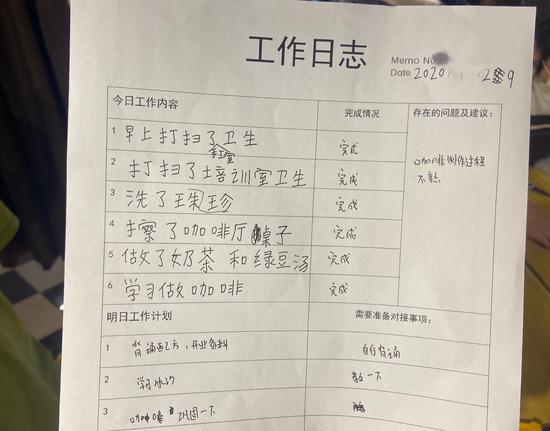 工作日志
Memo No
Date 2020 2 9
今日工作内容 完成情况 存在的问题及建议:
1 早上打扫了卫生 完成
2 打扫了培训室卫生 完成
咖啡制作过程
不熟
3 洗了珠珍 完成
4 擦了咖啡厅桌子 完成
5 做了奶茶和绿豆汤 完成
6 学习做咖啡 完成
明日工作计划 需要准备对接事项:
1 背诵配方,开业备料 自行背诵
2 学习冰沙 教一下
3 咖啡 巩固一下